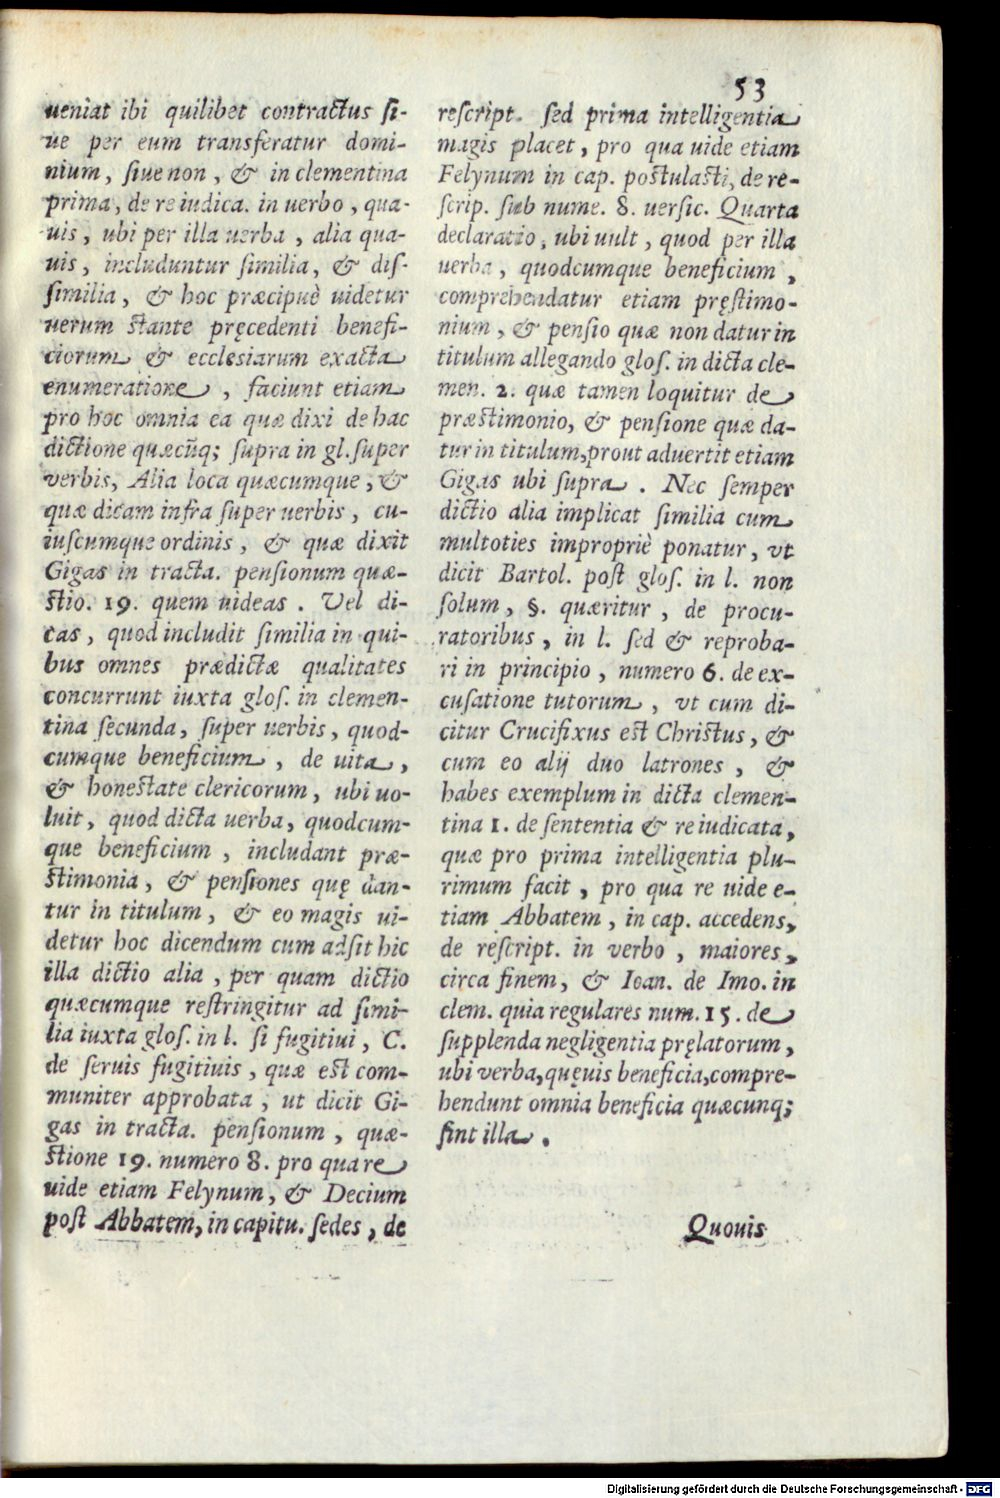 53
ueniat ibi quilibet contractus si-
ue per eum transferatur domi-
nium, siue non, & in clementina
prima, de re iudica. in uerbo, qua-
uis, ubi per illa uerba, alia qua-
uis, includuntur similia, & dis-
similia, & hoc præcipuè uidetur
uerum stante pręcedenti benefi-
ciorum & ecclesiarum exacta
enumeratione, faciunt etiam
pro hoc omnia ea quæ dixi de hac
dictione quæcũq; supra in gl. super
verbis, Alia loca quæcumque, &
quæ dicam infra super uerbis, cu-
iuscumque ordinis, & quæ dixit
Gigas in tracta. pensionum quæ-
stio. 19. quem uideas. Vel di-
cas, quod includit similia in qui-
bus omnes prædictæ qualitates
concurrunt iuxta glos. in clemen-
tina secunda, super uerbis, quod-
cumque beneficium, de uita,
& honestate clericorum, ubi uo-
luit, quod dicta uerba, quodcum-
que beneficium, includant præ-
stimonia, & pensiones quę dan-
tur in titulum, & eo magis ui-
detur hoc dicendum cum adsit hic
illa dictio alia, per quam dictio
quæcumque restringitur ad simi-
lia iuxta glos. in l. si fugitiui, C.
de seruis fugitiuis, quæ est com-
muniter approbata, ut dicit Gi-
gas in tracta. pensionum, quæ-
stione 19. numero 8. pro qua re
uide etiam Felynum, & Decium
post Abbatem, in capitu. sedes, de
rescript. sed prima intelligentia
magis placet, pro qua uide etiam
Felynum in cap. postulasti, de re-
scrip. sub nume. 8. uersic. Quarta
declaratio, ubi uult, quod per illa
uerba, quodcumque beneficium,
comprehendatur etiam pręstimo-
nium, & pensio quæ non datur in
titulum allegando glos. in dicta cle-
men. 2. quæ tamen loquitur de
præstimonio, & pensione quæ da-
tur in titulum, prout advertit etiam
Gigas ubi supra. Nec semper
dictio alia implicat similia cum
multoties impropriè ponatur, vt
dicit Bartol. post glos. in l. non
solum, §. quæritur, de procu-
ratoribus, in l. sed & reproba-
ri in principio, numero 6. de ex-
cusatione tutorum, vt cum di-
citur Crucifixus est Christus, &
cum eo alij duo latrones, &
habes exemplum in dicta clemen-
tina 1. de sententia & re iudicata,
quæ pro prima intelligentia plu-
rimum facit, pro qua re uide e-
tiam Abbatem, in cap. accedens,
de rescript. in verbo, maiores,
circa finem, & Ioan. de Imo. in
clem. quia regulares num. 15. de
supplenda negligentia pręlatorum,
ubi verba, quęuis beneficia, compre-
hendunt omnia beneficia quæcunq;
sint illa.
Quouis
Digitalisierung gefördert durch die Deutsche Forschungsgemeinschaft - DFG